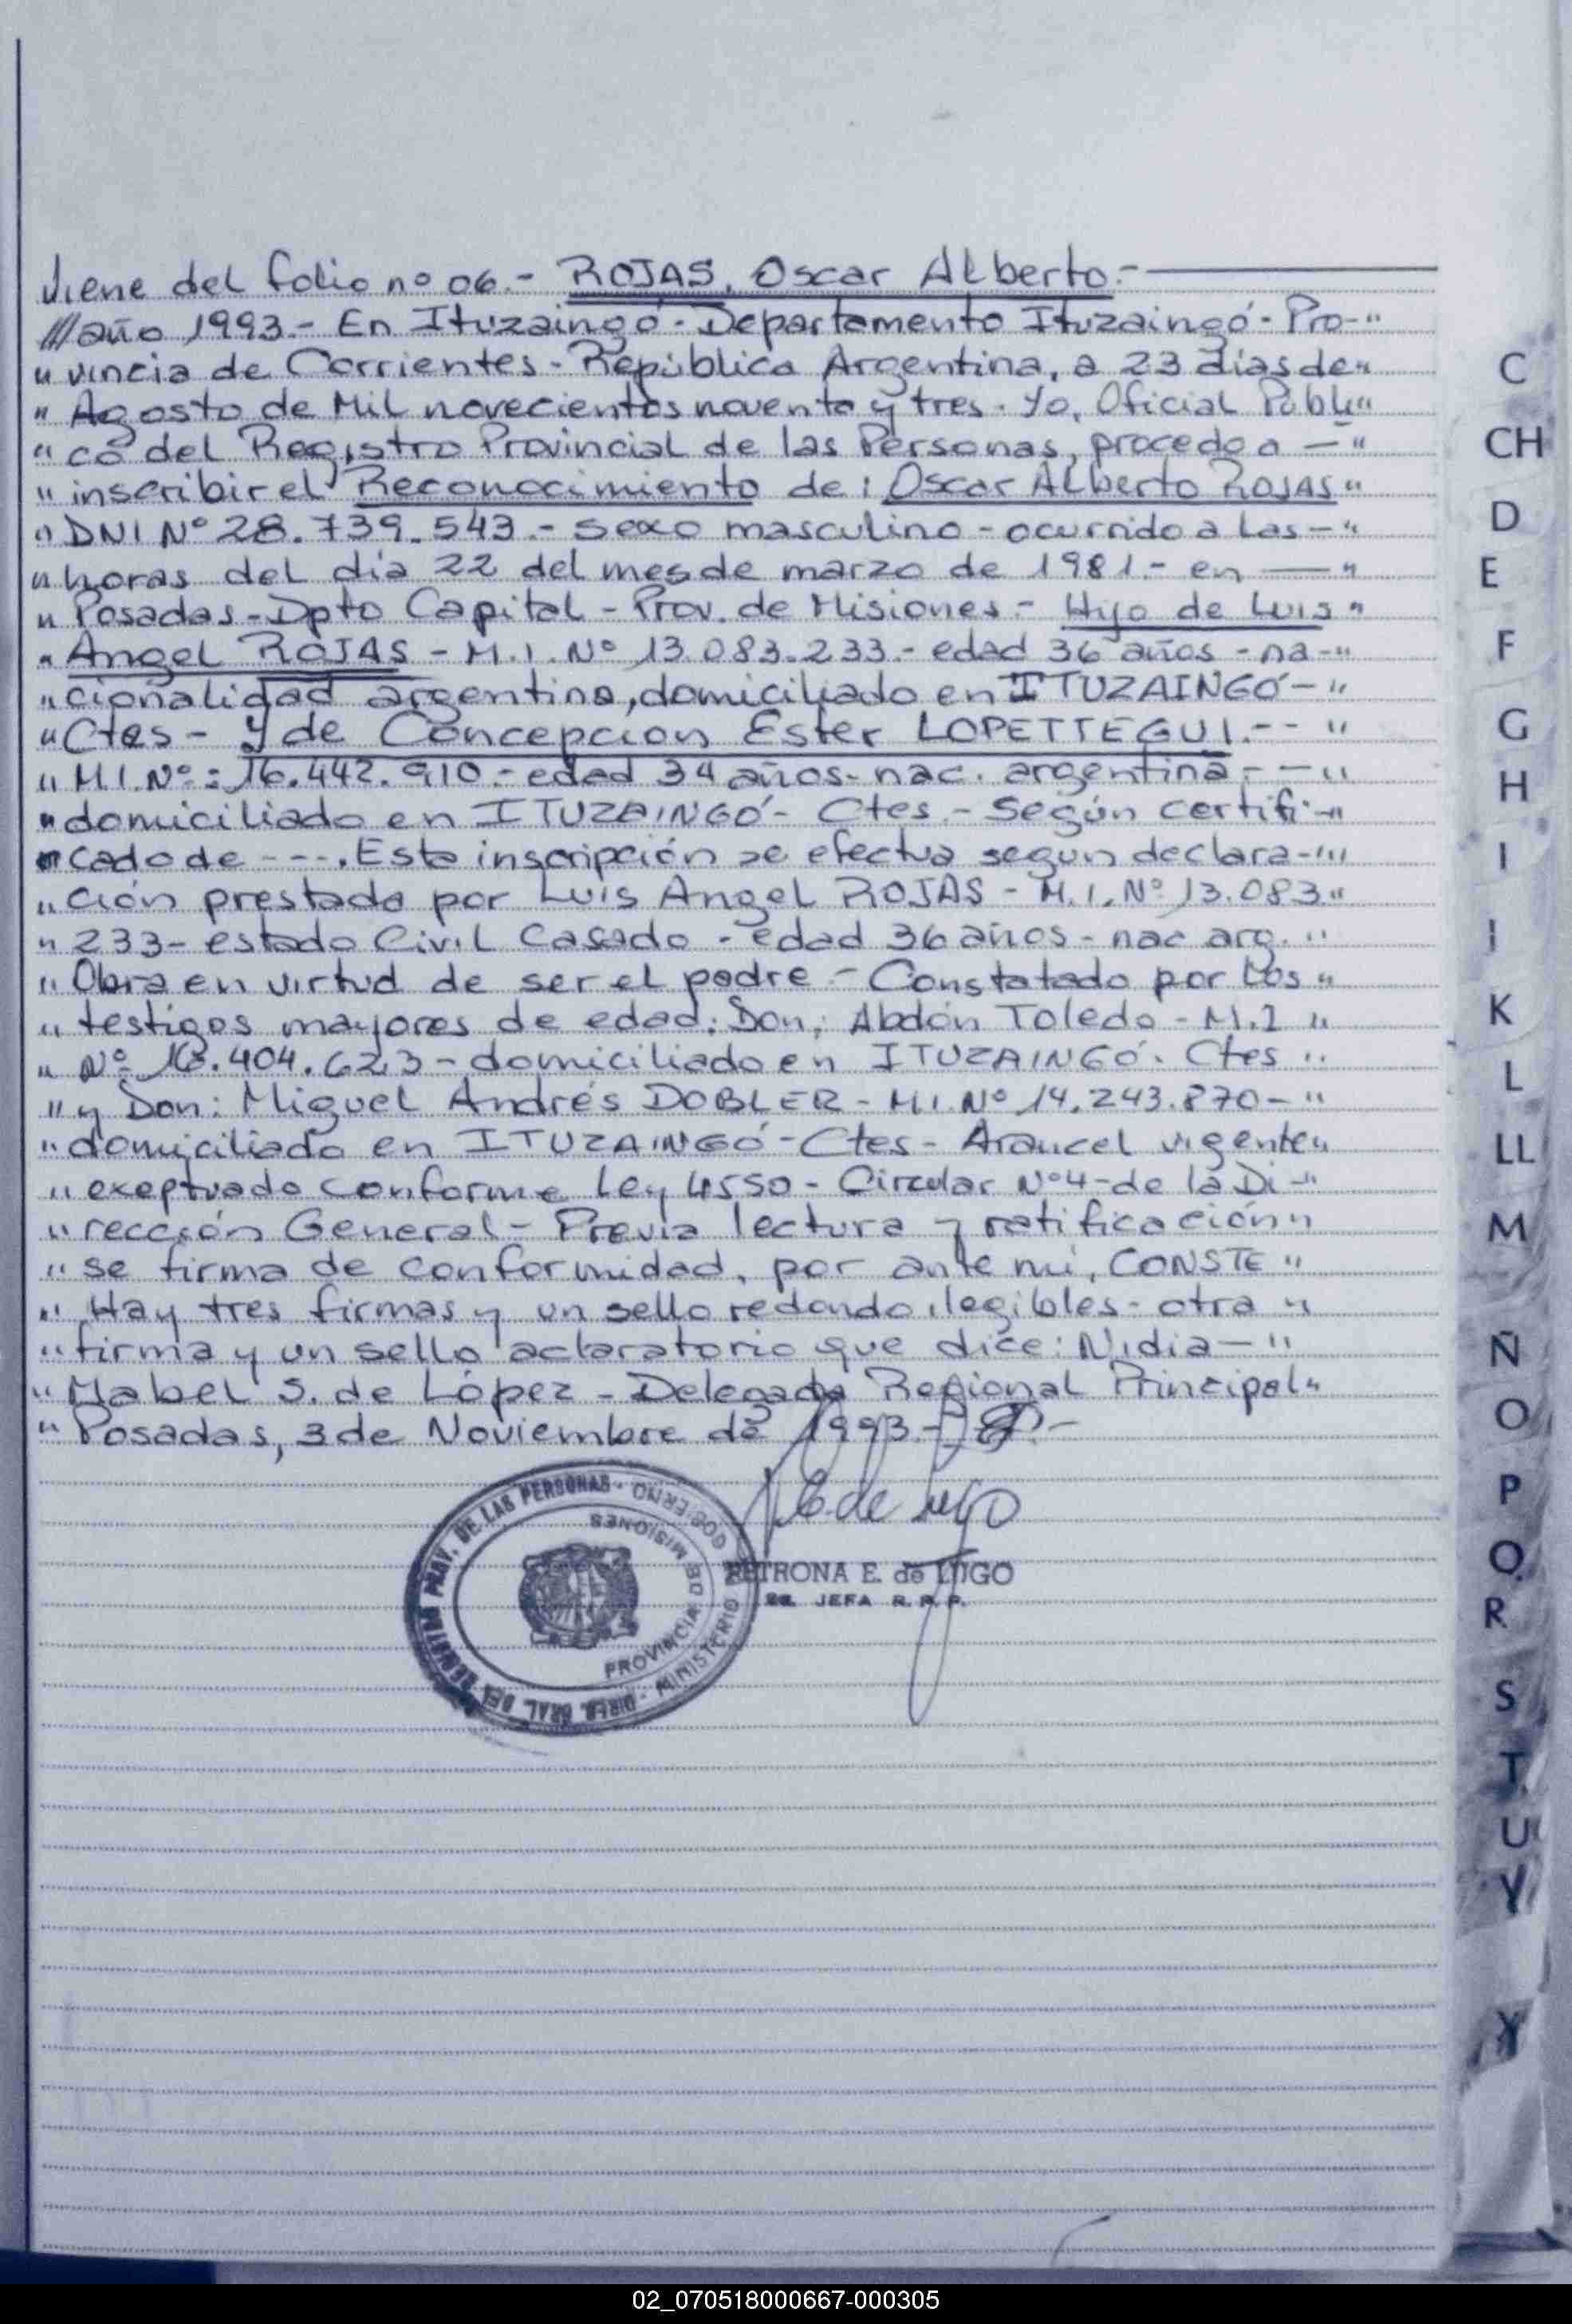 Viene del folio nº 06.- ROJAS, Oscar Alberto.-
///año 1993.- En Ituzaingó - Departamento Ituzaingó - Pro-"
" vincia de Corrientes - República Argentina, a 23 días de"
" Agosto de Mil novecientos noventa y tres. Yo, Oficial Públi"
" co del Registro Provincial de las Personas, procedo a - "
" inscribir el Reconocimiento de: Oscar Alberto ROJAS"
" DNI Nº 28.739.543.- sexo masculino - ocurrido a las - "
" horas del día 22 del mes de marzo de 1981.- en — "
" Posadas - Dpto Capital - Prov. de Misiones.- Hijo de Luis "
" Angel ROJAS - M.I. Nº 13.083.233.- edad 36 años - na-"
" cionalidad argentina, domiciliado en ITUZAINGÓ - "
" Ctes - y de Concepcion Ester LOPETTEGUI.-- "
" M.I. Nº: 16.442.910.- edad 34 años - nac. argentina - - "
" domiciliado en ITUZAINGÓ - Ctes.- Según certifi-"
" cado de ---. Esta inscripción se efectua segun declara-"
" ción prestada por Luis Angel ROJAS - M.I. Nº 13.083"
" 233- estado Civil Casado - edad 36 años - nac arg. "
" Obra en virtud de ser el padre - Constatado por los "
" testigos mayores de edad: Don: Abdón Toledo - M.I "
" Nº 16.404.623 - domiciliado en ITUZAINGÓ. Ctes "
" y Don: Miguel Andrés DOBLER - M.I. Nº 14.243.870 - "
" domiciliado en ITUZAINGÓ - Ctes - Arancel vigente"
" exeptuado conforme Ley 4550 - Circular Nº 4 - de la Di-"
" rección General - Previa lectura y ratificación"
" se firma de conformidad, por ante mi, CONSTE "
" Hay tres firmas y un sello redondo ilegibles - otra "
" firma y un sello aclaratorio que dice: Nidia - "
" Mabel S. de López - Delegada Regional Principal"
" Posadas, 3 de Noviembre de 1993.-
DIREC. GRAL DEL REGISTRO PROV. DE LAS PERSONAS - MINISTERIO DE GOBIERNO
PROVINCIA DE MISIONES
PETRONA E. de LUGO
JEFA R. P. P.
C
CH
D
E
F
G
H
I
J
K
L
LL
M
N
O
P
Q
R
S
T
U
V
Y
02_070518000667-000305